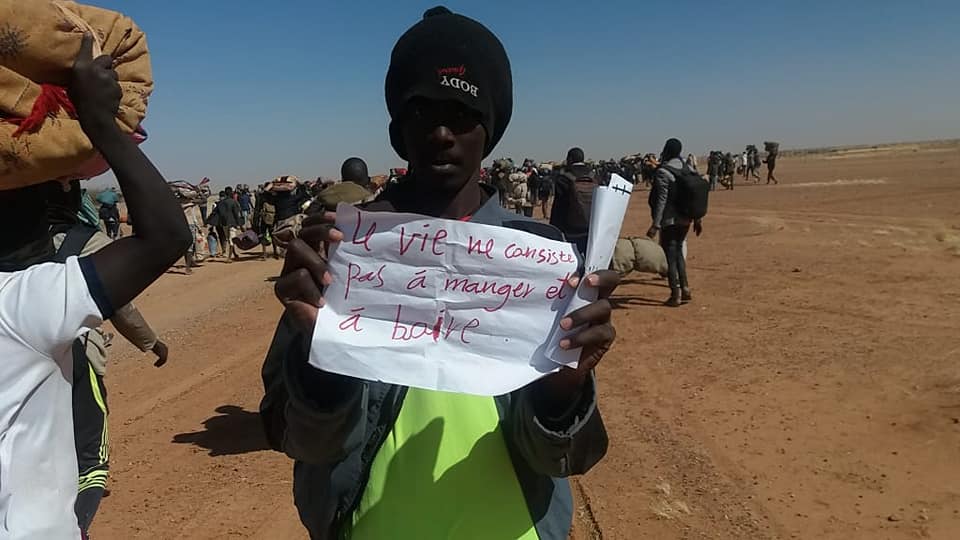 BODY
Le vie ne consiste
pas à manger et
à boire.